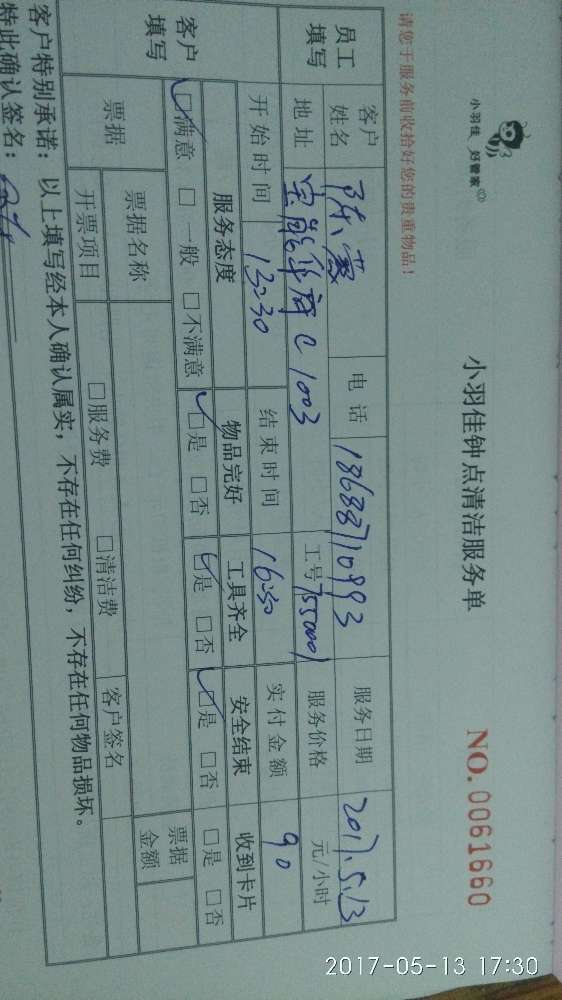 小羽佳 好管家
小羽佳钟点清洁服务单
NO.0061660
请您于服务前收拾好您的贵重物品!
员工填写
客户姓名 陈 电话 18688710993 服务日期 2017.5.13
地址 宝能华府C1003 工号 755001 服务价格 元/小时
开始时间 13:30 结束时间 16:30 实付金额 90
客户填写
服务态度 物品完好 工具齐全 安全结束 收到卡片
☑满意 □一般 □不满意 ☑是 □否 ☑是 □否 ☑是 □否 □是 □否
票据 票据名称 票据金额
开票项目 □服务费 □清洁费 客户签名
客户特别承诺: 以上填写经本人确认属实,不存在任何纠纷,不存在任何物品损坏。
特此确认签名:
2017-05-13 17:30